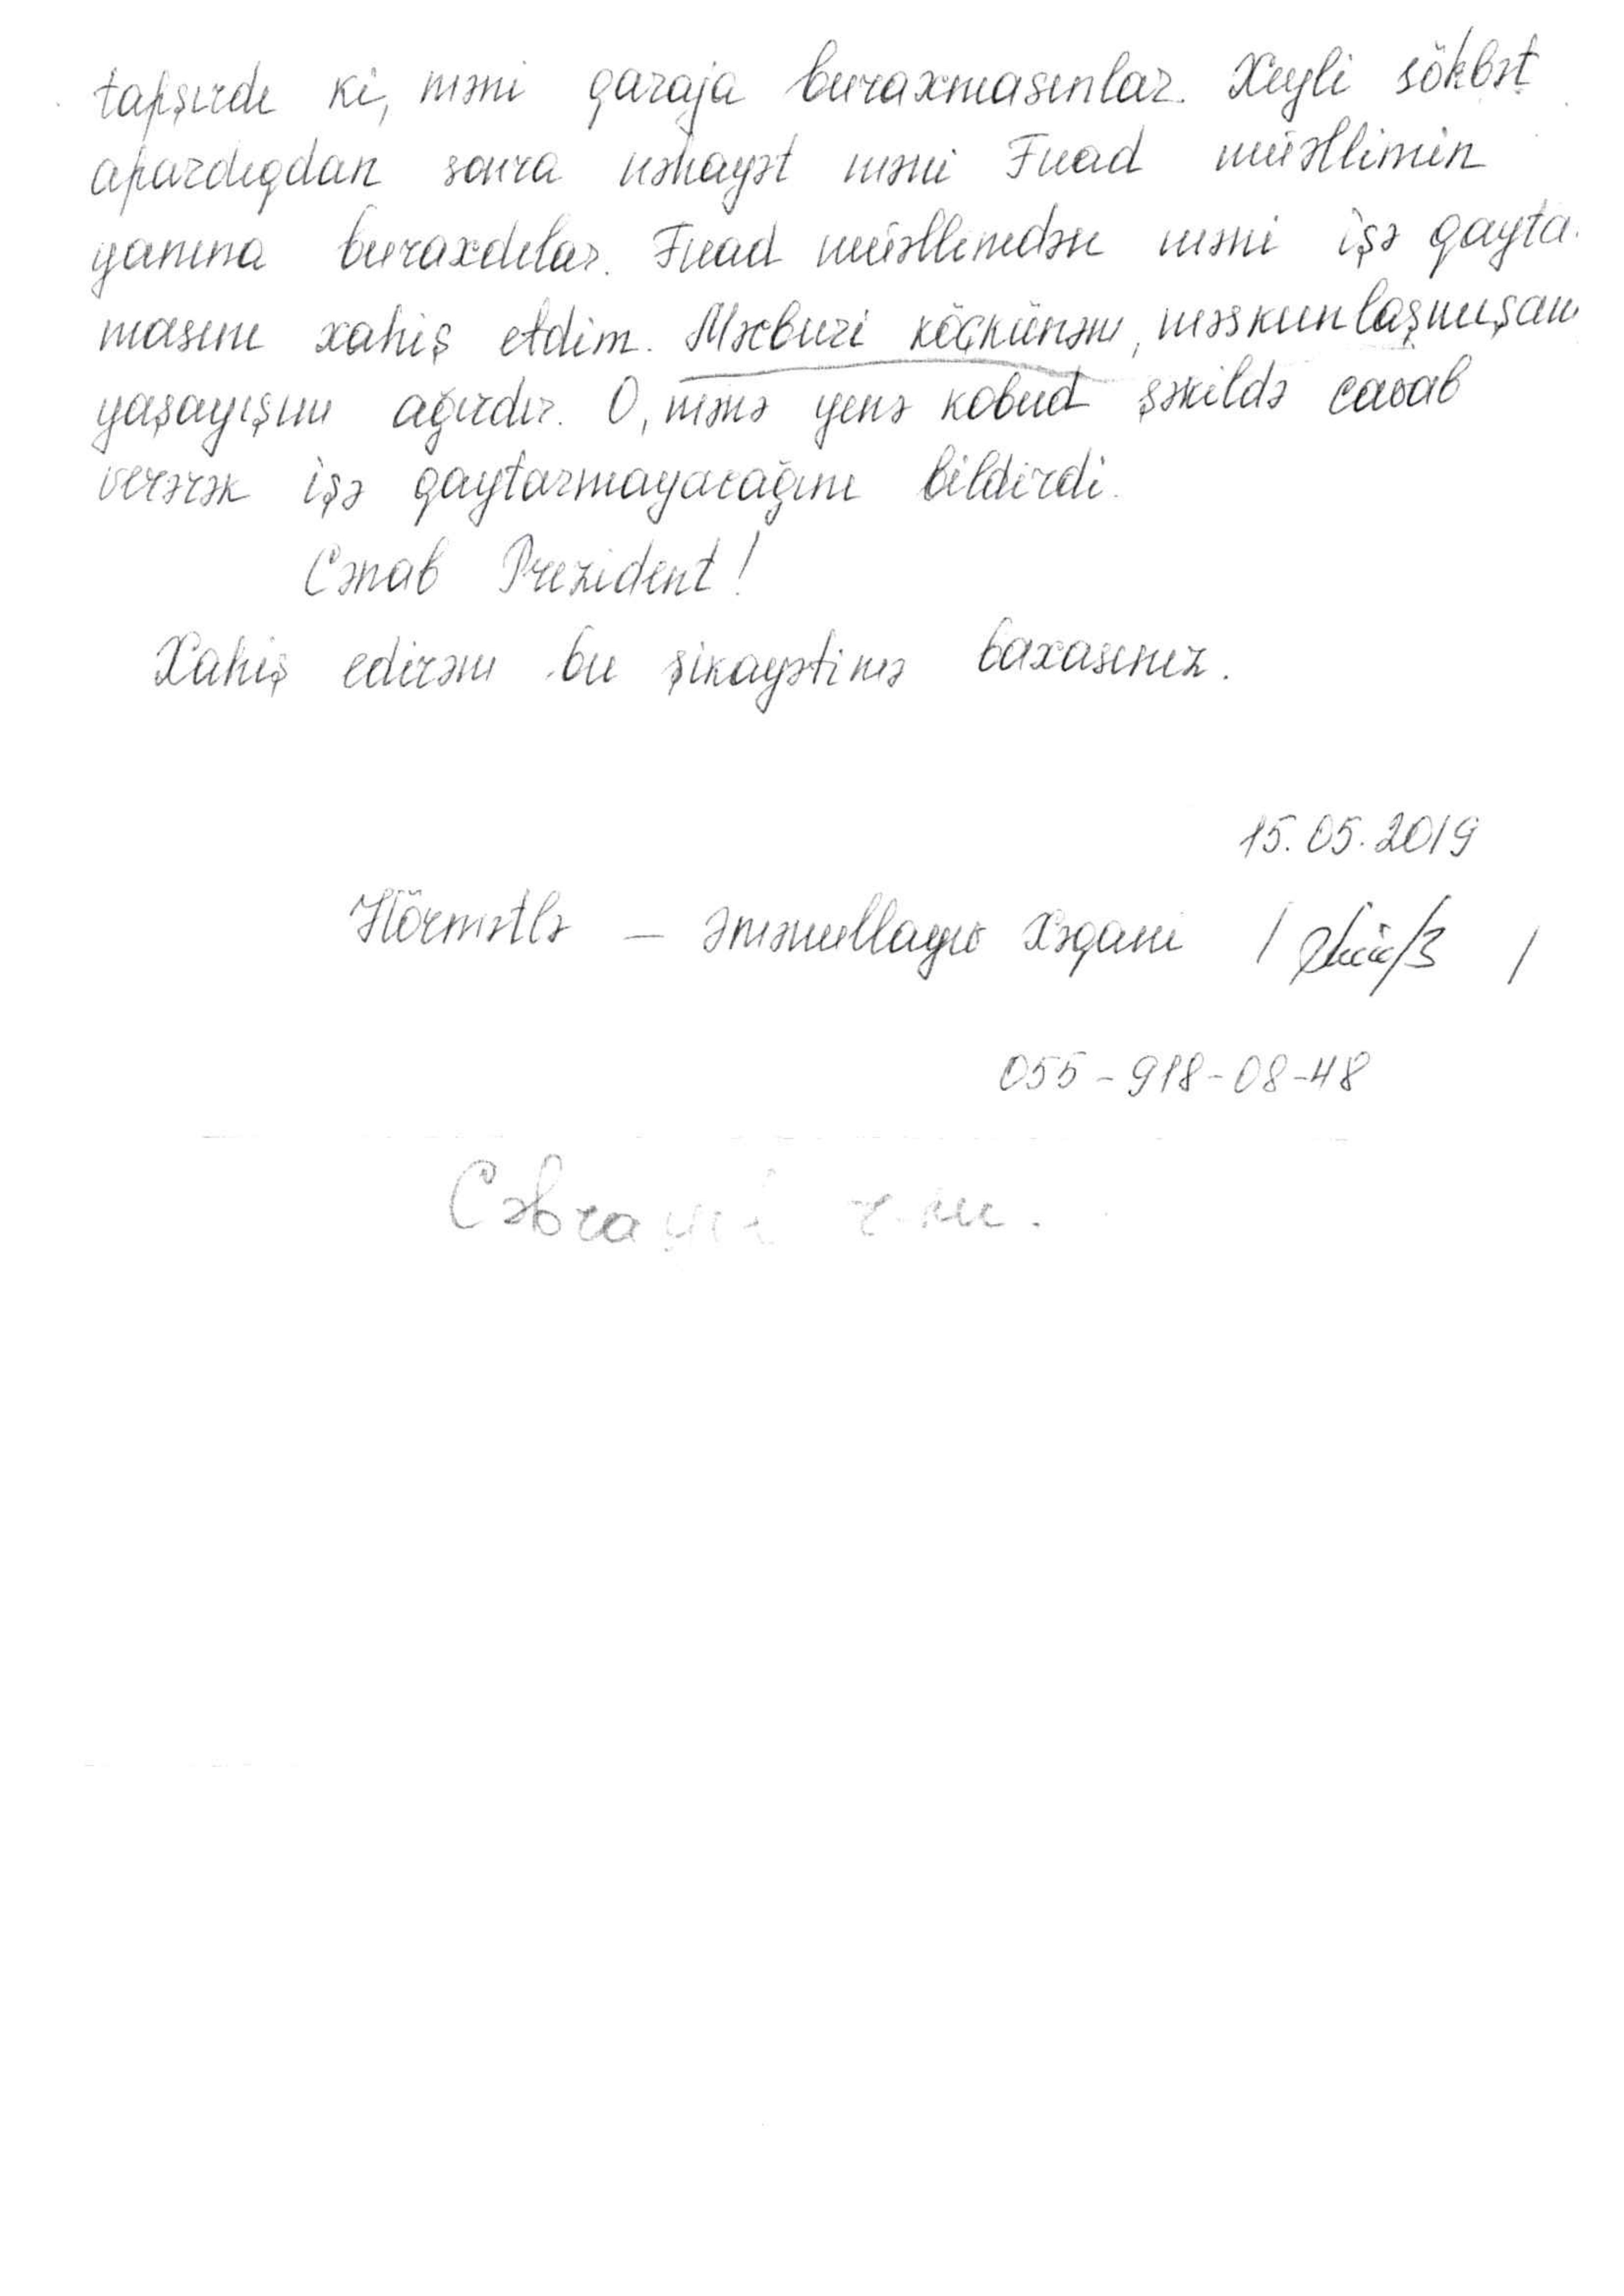 tapşırdı ki, məni qaraja buraxmasınlar. Xeyli söhbət
apardıqdan sonra nəhayət məni Fuad müəllimin
yanına buraxdılar. Fuad müəllimdən məni işə qayta.
masını xahiş etdim. Məcburi köçkünəm, məskunlaşmışam
yaşayışım ağırdır. O, mənə yenə kobud şəkildə cavab
verərək işə qaytarmayacağını bildirdi.
Cənab Prezident!
Xahiş edirəm bu şikayətimə baxasınız.
15.05.2019
Hörmətlə – Xəqani / /
055-918-08-48
Cəbrayıl